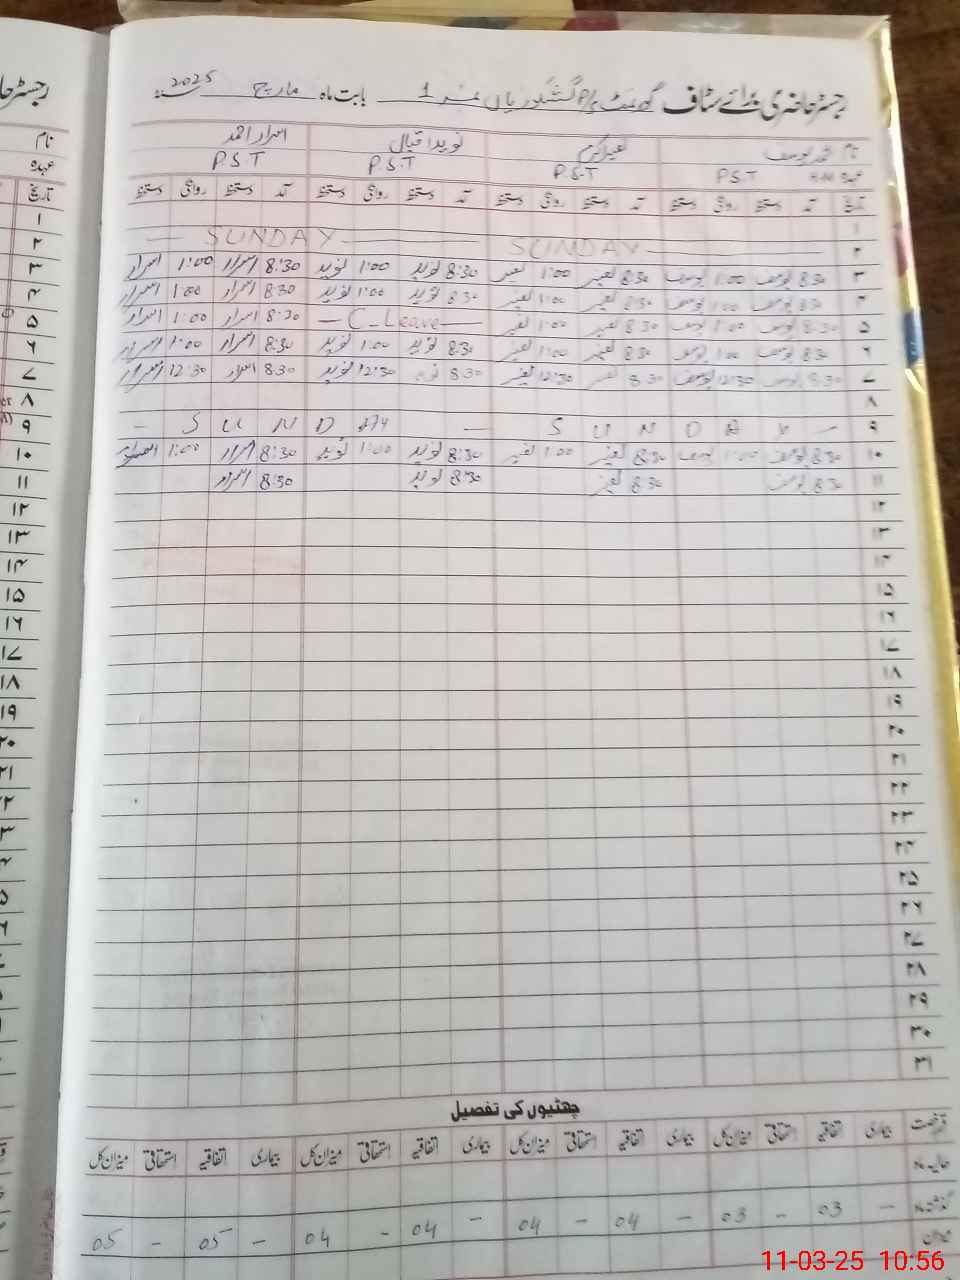 رجسٹر حاضری برائے سٹاف گورنمنٹ P/S نمبر 1 بابت ماہ مارچ 2025
نام محمد یوسف نوید اقبال اسرار احمد
عہدہ H.M P.S.T P.S.T P.S.T P.S.T
تاریخ آمد دستخط روانگی دستخط آمد دستخط روانگی دستخط آمد دستخط روانگی دستخط آمد دستخط روانگی دستخط
۱
۲ SUNDAY SUNDAY
۳ 8:30 یوسف 1:00 یوسف 8:30 1:00 8:30 نوید 1:00 نوید 8:30 اسرار 1:00 اسرار
۴ 8:30 یوسف 1:00 یوسف 8:30 1:00 8:30 نوید 1:00 نوید 8:30 اسرار 1:00 اسرار
۵ 8:30 یوسف 1:00 یوسف 8:30 1:00 — C-Leave — 8:30 اسرار 1:00 اسرار
۶ 8:30 یوسف 1:00 یوسف 8:30 1:00 8:30 نوید 1:00 نوید 8:30 اسرار 1:00 اسرار
۷ 8:30 یوسف 12:30 یوسف 8:30 12:30 8:30 نوید 12:30 نوید 8:30 اسرار 12:30 اسرار
۸
۹ S U N D A Y — S U N D A Y —
۱۰ 8:30 یوسف 1:00 یوسف 8:30 1:00 8:30 نوید 1:00 نوید 8:30 اسرار 1:00
۱۱ 8:30 یوسف 8:30 8:30 نوید 8:30 اسرار
۱۲
۱۳
۱۴
۱۵
۱۶
۱۷
۱۸
۱۹
۲۰
۲۱
۲۲
۲۳
۲۴
۲۵
۲۶
۲۷
۲۸
۲۹
۳۰
۳۱
چھٹیوں کی تفصیل
رخصت بیماری اتفاقیہ استحقاقی میزان کل بیماری اتفاقیہ استحقاقی میزان کل بیماری اتفاقیہ استحقاقی میزان کل بیماری اتفاقیہ استحقاقی میزان کل
حالیہ ماہ
گذشتہ ماہ — 03 — 03 — 04 — 04 — 04 - 04 — 05 - 05
میزان
11-03-25 10:56